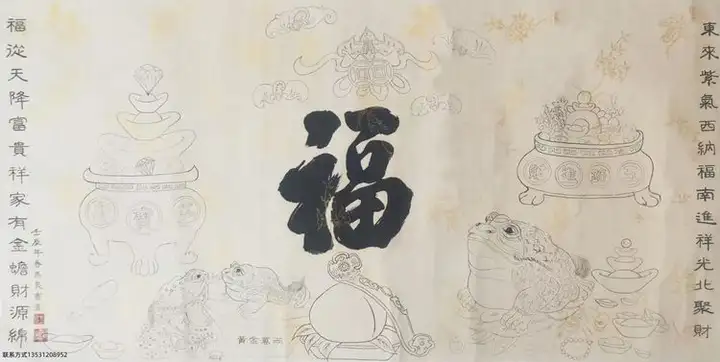 東來紫氣西納福南進祥光北聚財
福
福從天降富貴祥家有金蟾財源綿
联系方式13531208952